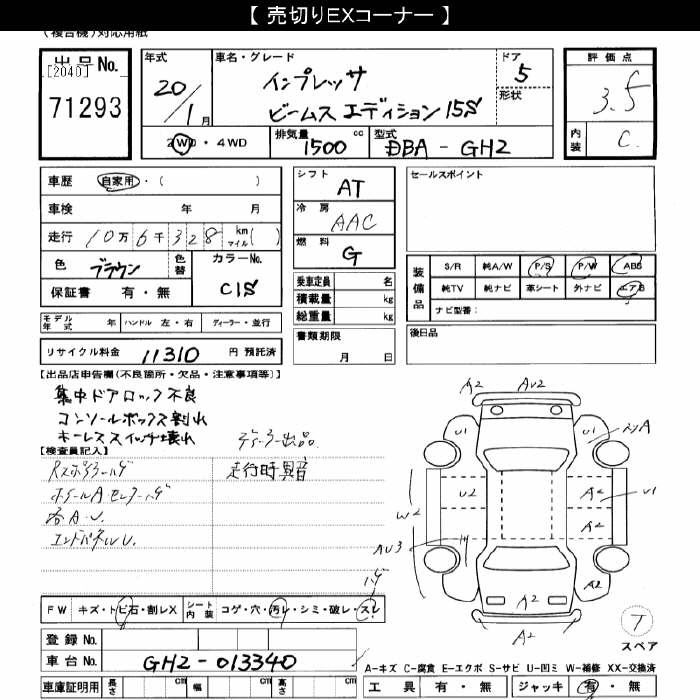 【 売切りEXコーナー 】
(複合機)対応用紙
出品No.
[2040]
71293
年式
20/1月
車名・グレード
インプレッサ
ビームスエディション15S
ドア
5
形状
2WD・4WD
排気量 1500 cc
型式 DBA-GH2
評価点
3.5
内装
C
車歴 自家用・( )
車検 年 月
走行 10万6千328 km マイル( )
色 ブラウン 色替
カラーNo.
C1S
保証書 有・無
モデル年式 年 ハンドル 左・右 ディーラー・並行
リサイクル料金 11310 円 預託済
シフト
AT
冷房
AAC
燃料
G
乗車定員 名
積載量 kg
総重量 kg
書類期限
月 日
セールスポイント
装備品
S/R 純A/W P/S P/W ABS
純TV 純ナビ 革シート 外ナビ エアB
ナビ型番:
後日品
【出品店申告欄(不良箇所・欠品・注意事項等)】
集中ドアロック不良
コンソールボックス割れ
キーレススイッチ壊れ
ディーラー出品
【検査員記入】
走行時異音
各A.U.
FW キズ・トビ石・割レX
シート内装 コゲ・穴・汚レ・シミ・破レ・スレ
登録No.
車台No. GH2-013340
車庫証明用 長さ cm 幅 cm 高さ cm
A2 AU2
U1 U1
U2 A2 U1
W2 A2
AU3
A2 A2
A2
T
スペア
A-キズ C-腐食 E-エクボ S-サビ U-凹ミ W-補修 XX-交換済
工具 有・無 ジャッキ 有・無